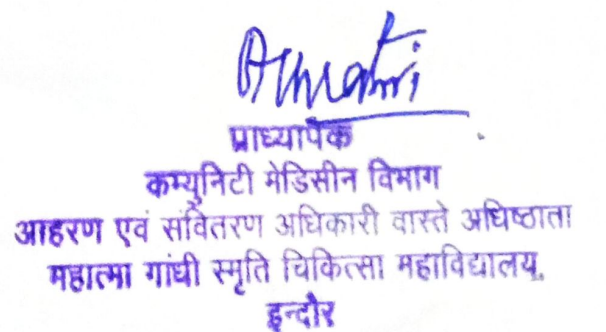 प्राध्यापक
कम्युनिटी मेडिसीन विभाग
आहरण एवं संवितरण अधिकारी वास्ते अधिष्ठाता
महात्मा गांधी स्मृति चिकित्सा महाविद्यालय,
इन्दौर